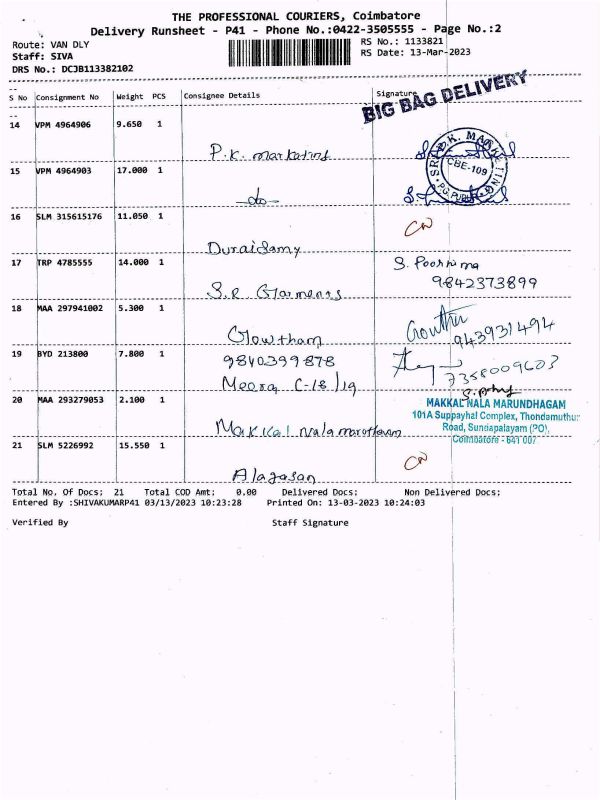 THE PROFESSIONAL COURIERS, Coimbatore
Delivery Runsheet - P41 - Phone No.:0422-3505555 - Page No.:2
Route: VAN DLY RS No.: 1133821
Staff: SIVA RS Date: 13-Mar-2023
DRS No.: DCJB113382102
S No Consignment No Weight PCS Consignee Details Signature
BIG BAG DELIVERY
14 VPM 4964906 9.650 1
P.K. marketing
SRI P.K. MARKETING
CBE-109
15 VPM 4964903 17.000 1
-do-
16 SLM 315615176 11.050 1
Duraisamy
CN
17 TRP 4785555 14.000 1
S.R Garments
S. Poornima
9842373899
18 MAA 297941002 5.300 1
Gowtham
943931494
19 BYD 213800 7.800 1
9840399878
Meera C-18/19
7358009603
20 MAA 293279053 2.100 1
Makkal nala
MAKKAL NALA MARUNDHAGAM
101A Suppayhal Complex, Thondamuthur
Road, Sundapalayam (PO),
Coimbatore - 641 007
21 SLM 5226992 15.550 1
Alagasan
CN
Total No. Of Docs: 21 Total COD Amt: 0.00 Delivered Docs: Non Delivered Docs:
Entered By :SHIVAKUMARP41 03/13/2023 10:23:28 Printed On: 13-03-2023 10:24:03
Verified By Staff Signature